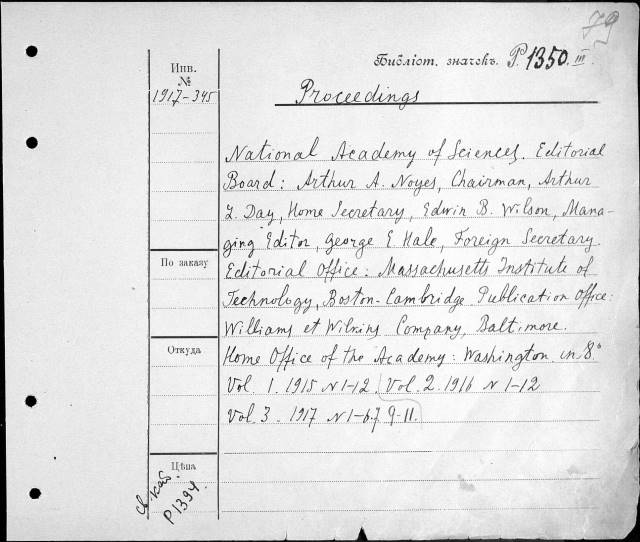 79
Библіот. значокъ P.1350.III.
Инв.
№
1917-345
Proceedings
National Academy of Sciences. Editorial
Board: Arthur A. Noyes, Chairman, Arthur
L. Day, Home Secretary, Edwin B. Wilson, Mana-
ging Editor, George E. Hale, Foreign Secretary.
Editorial Office: Massachusetts Institute of
Technology, Boston-Cambridge Publication Office:
Williams et Wilkins Company, Baltimore.
Home Office of the Academy: Washington. in 8°
Vol. 1. 1915 N 1-12. Vol. 2. 1916 N 1-12
Vol. 3. 1917 N 1-6. 7. 9-11.
По заказу
Откуда
Цѣна
См. каб.
P 1394.